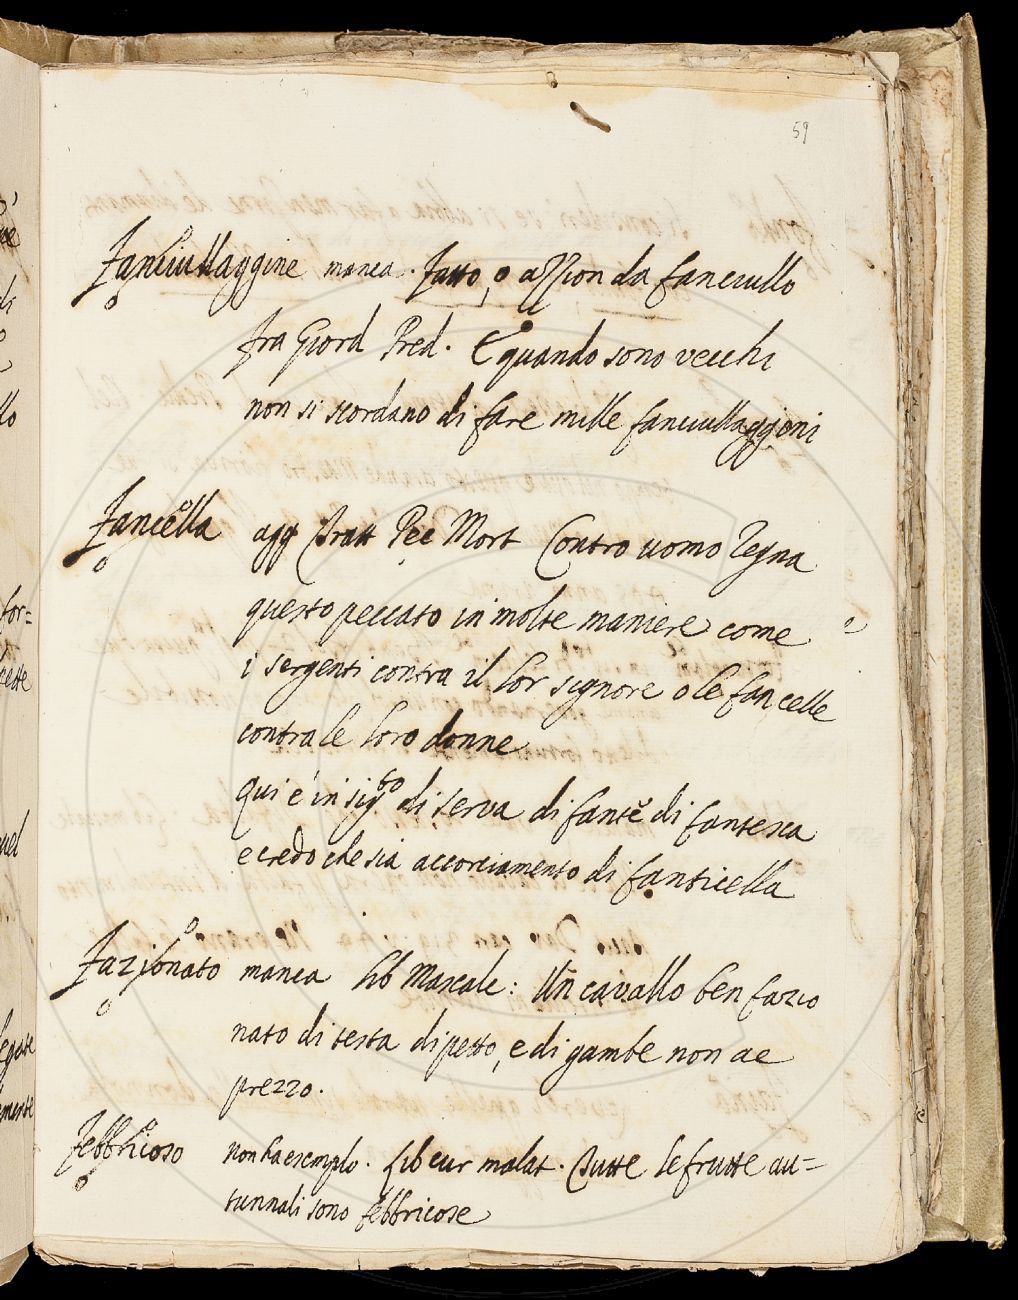 59
Fanciullaggine manca. Fatto, o azzion da fanciullo
fra Giord Pred. E quando sono vecchi
non si scordano di fare mille fanciullaggini
Fancella agg Tratt Pec Mort Contro uomo regna
questo peccato in molte maniere come
i sergenti contra il lor signore o le fancelle
contra le loro donne
qui e in sigto di serva di fante di fantesca
e credo che sia accorciamento di fanticella
Fazionato manca lib Mascalc: Un cavallo ben fazio
nato di testa di petto, e di gambe non ae
prezzo.
Febbricoso non ha esemplo. Lib cur malat. Tutte le frutte au=
tunnali sono febbricose